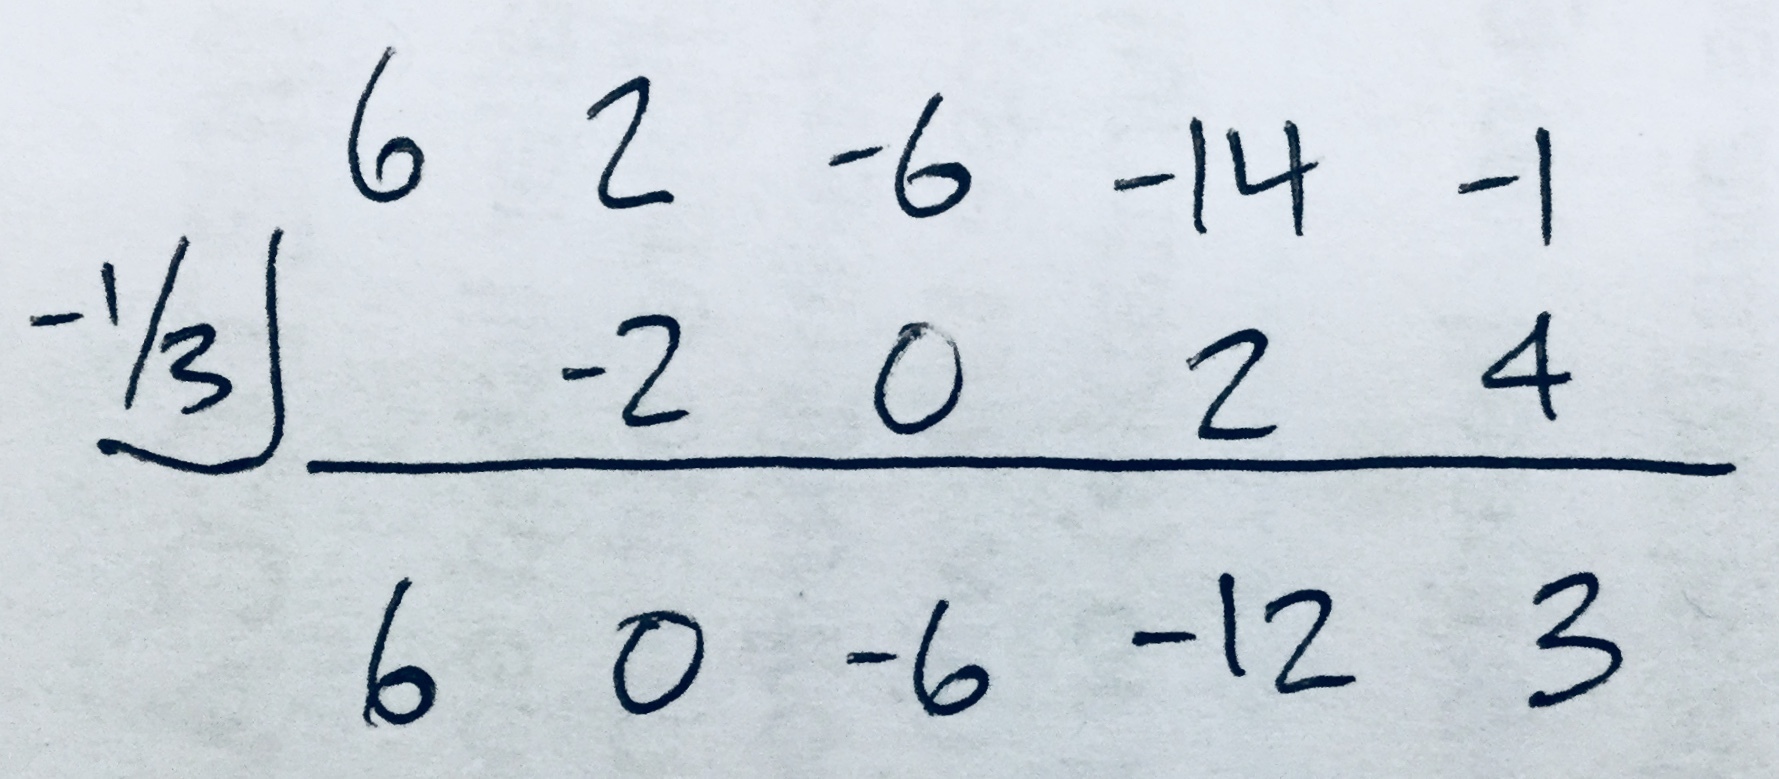 6 2 -6 -14 -1
-1/3 -2 0 2 4
6 0 -6 -12 3